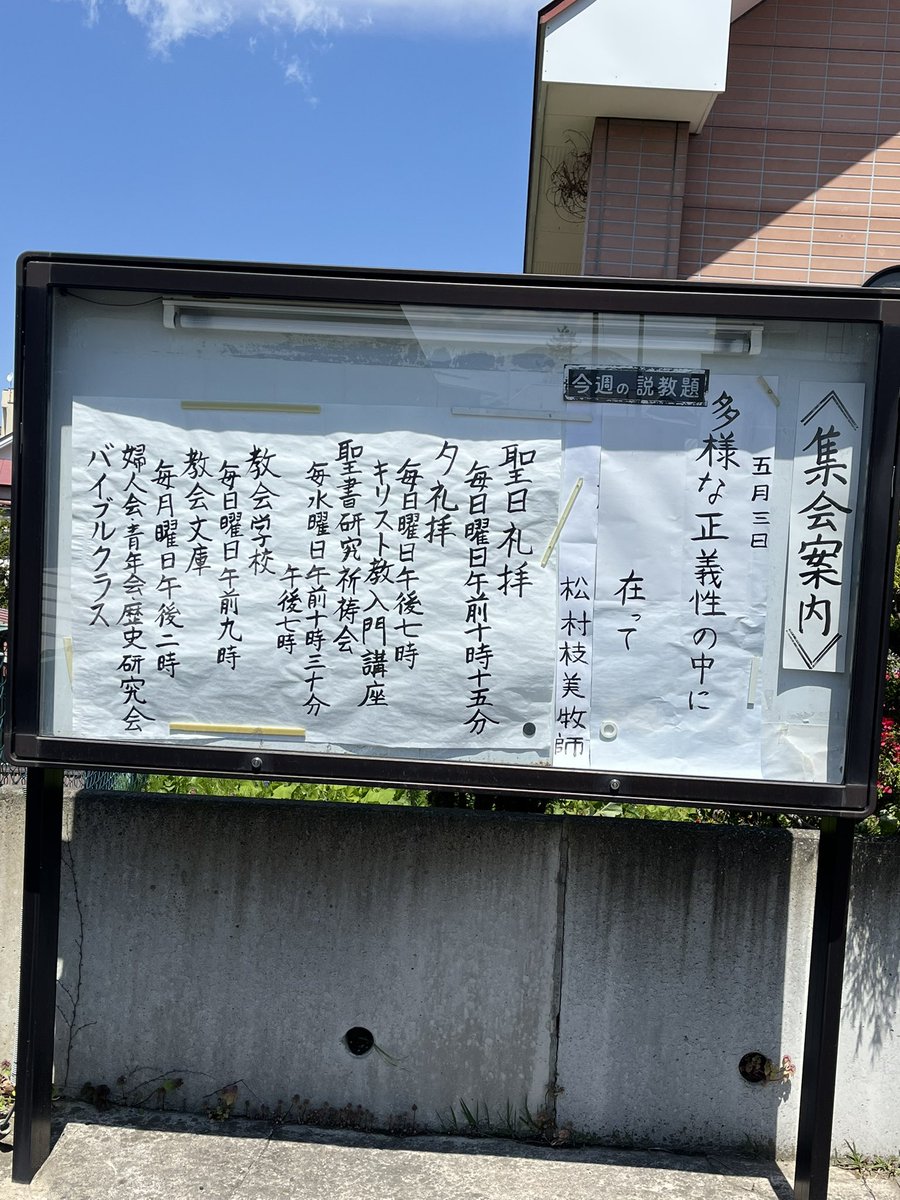 《集会案内》
今週の説教題
五月三日
多様な正義性の中に
在って
松村枝美牧師
聖日礼拝
毎日曜日午前十時十五分
夕礼拝
毎日曜日午後七時
キリスト教入門講座
聖書研究祈祷会
毎水曜日午前十時三十分
午後七時
教会学校
毎日曜日午前九時
教会文庫
毎月曜日午後二時
婦人会青年会歴史研究会
バイブルクラス